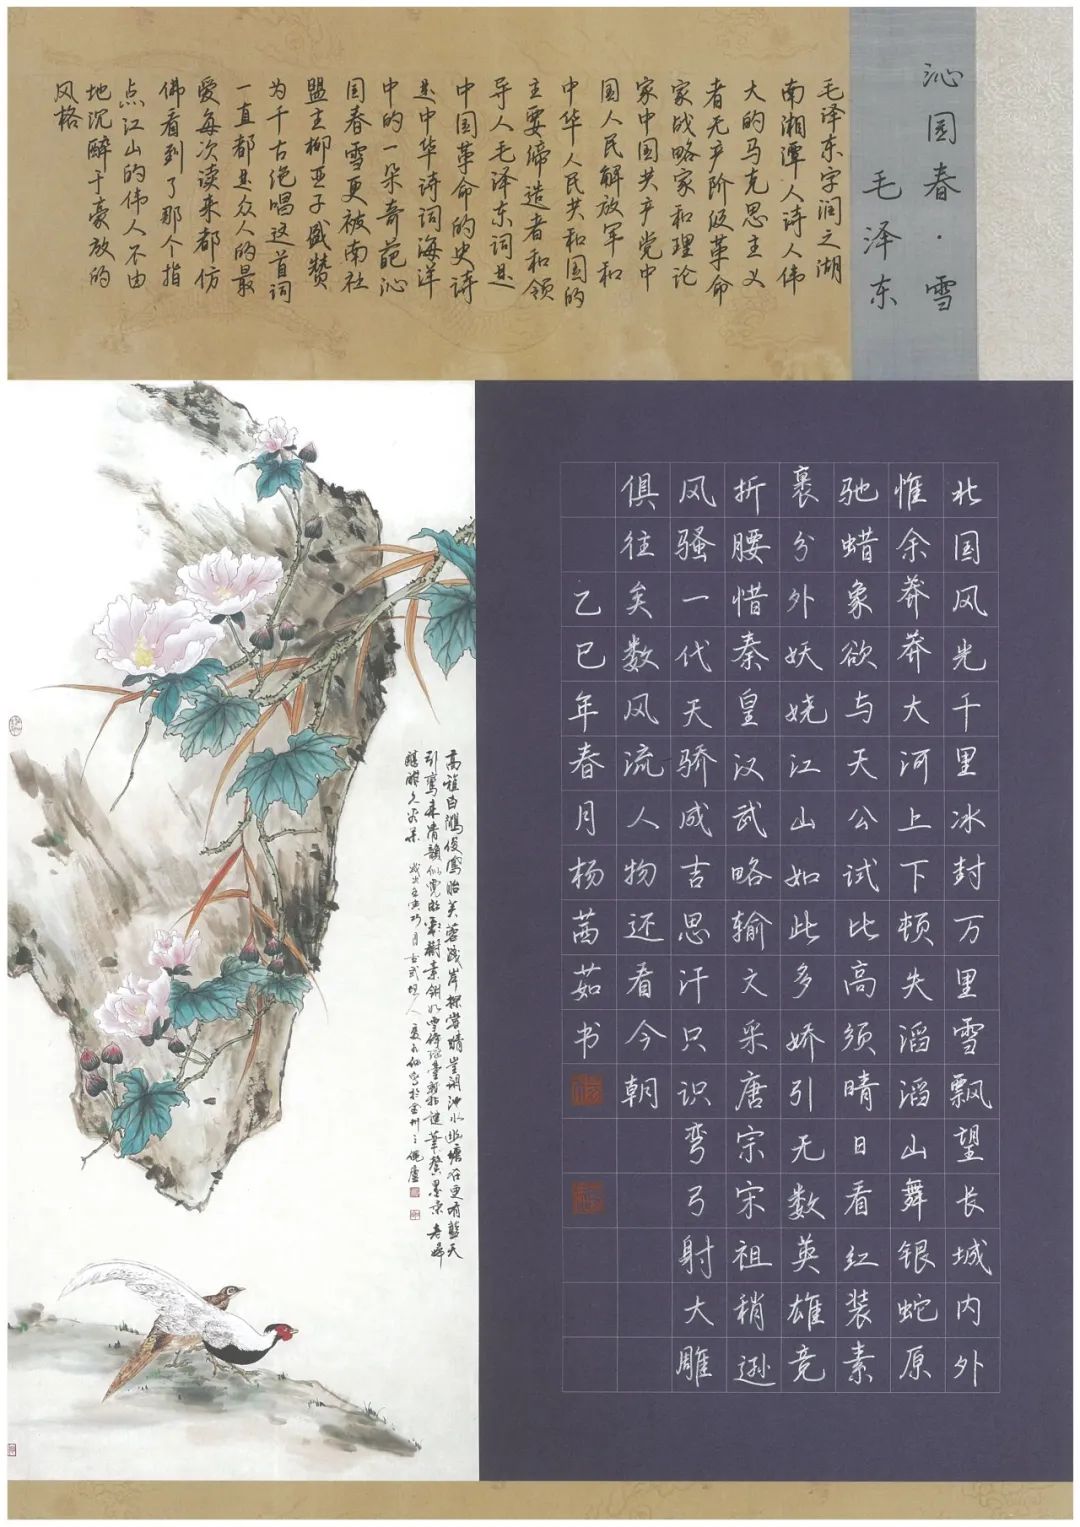 沁园春·雪
毛泽东
毛泽东字润之湖
南湘潭人诗人伟
大的马克思主义
者无产阶级革命
家战略家和理论
家中国共产党中
国人民解放军和
中华人民共和国的
主要缔造者和领
导人毛泽东词是
中国革命的史诗
是中华诗词海洋
中的一朵奇葩沁
园春雪更被南社
盟主柳亚子盛赞
为千古绝唱这首词
一直都是众人的最
爱每次读来都仿
佛看到了那个指
点江山的伟人不由
地沉醉于豪放的
风格
北国风光千里冰封万里雪飘望长城内外
惟余莽莽大河上下顿失滔滔山舞银蛇原
驰蜡象欲与天公试比高须晴日看红装素
裹分外妖娆江山如此多娇引无数英雄竞
折腰惜秦皇汉武略输文采唐宗宋祖稍逊
风骚一代天骄成吉思汗只识弯弓射大雕
俱往矣数风流人物还看今朝
乙巳年春月杨茜茹书